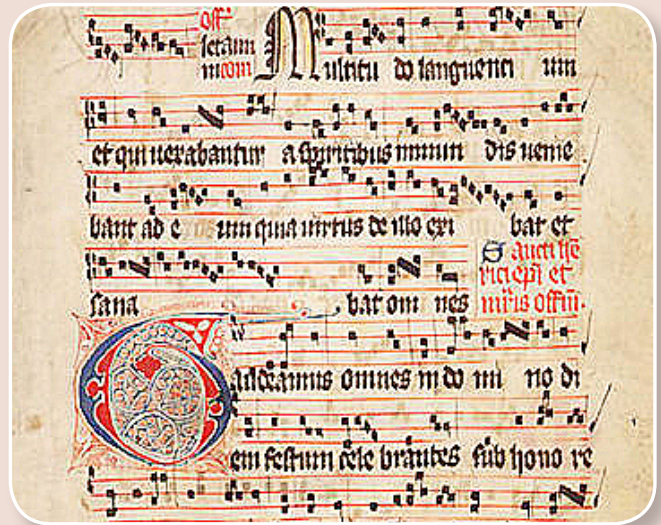 off
in com
Multitu do languenti um
et qui uexabantur a spiritibus inmun dis uenie
bant ad e um quia uirtus de illo exi bat et
sana bat om nes
Sancti he
rici epi et
mris offm.
Gaudeamus omnes in do mi no di
em festum cele brantes sub hono re